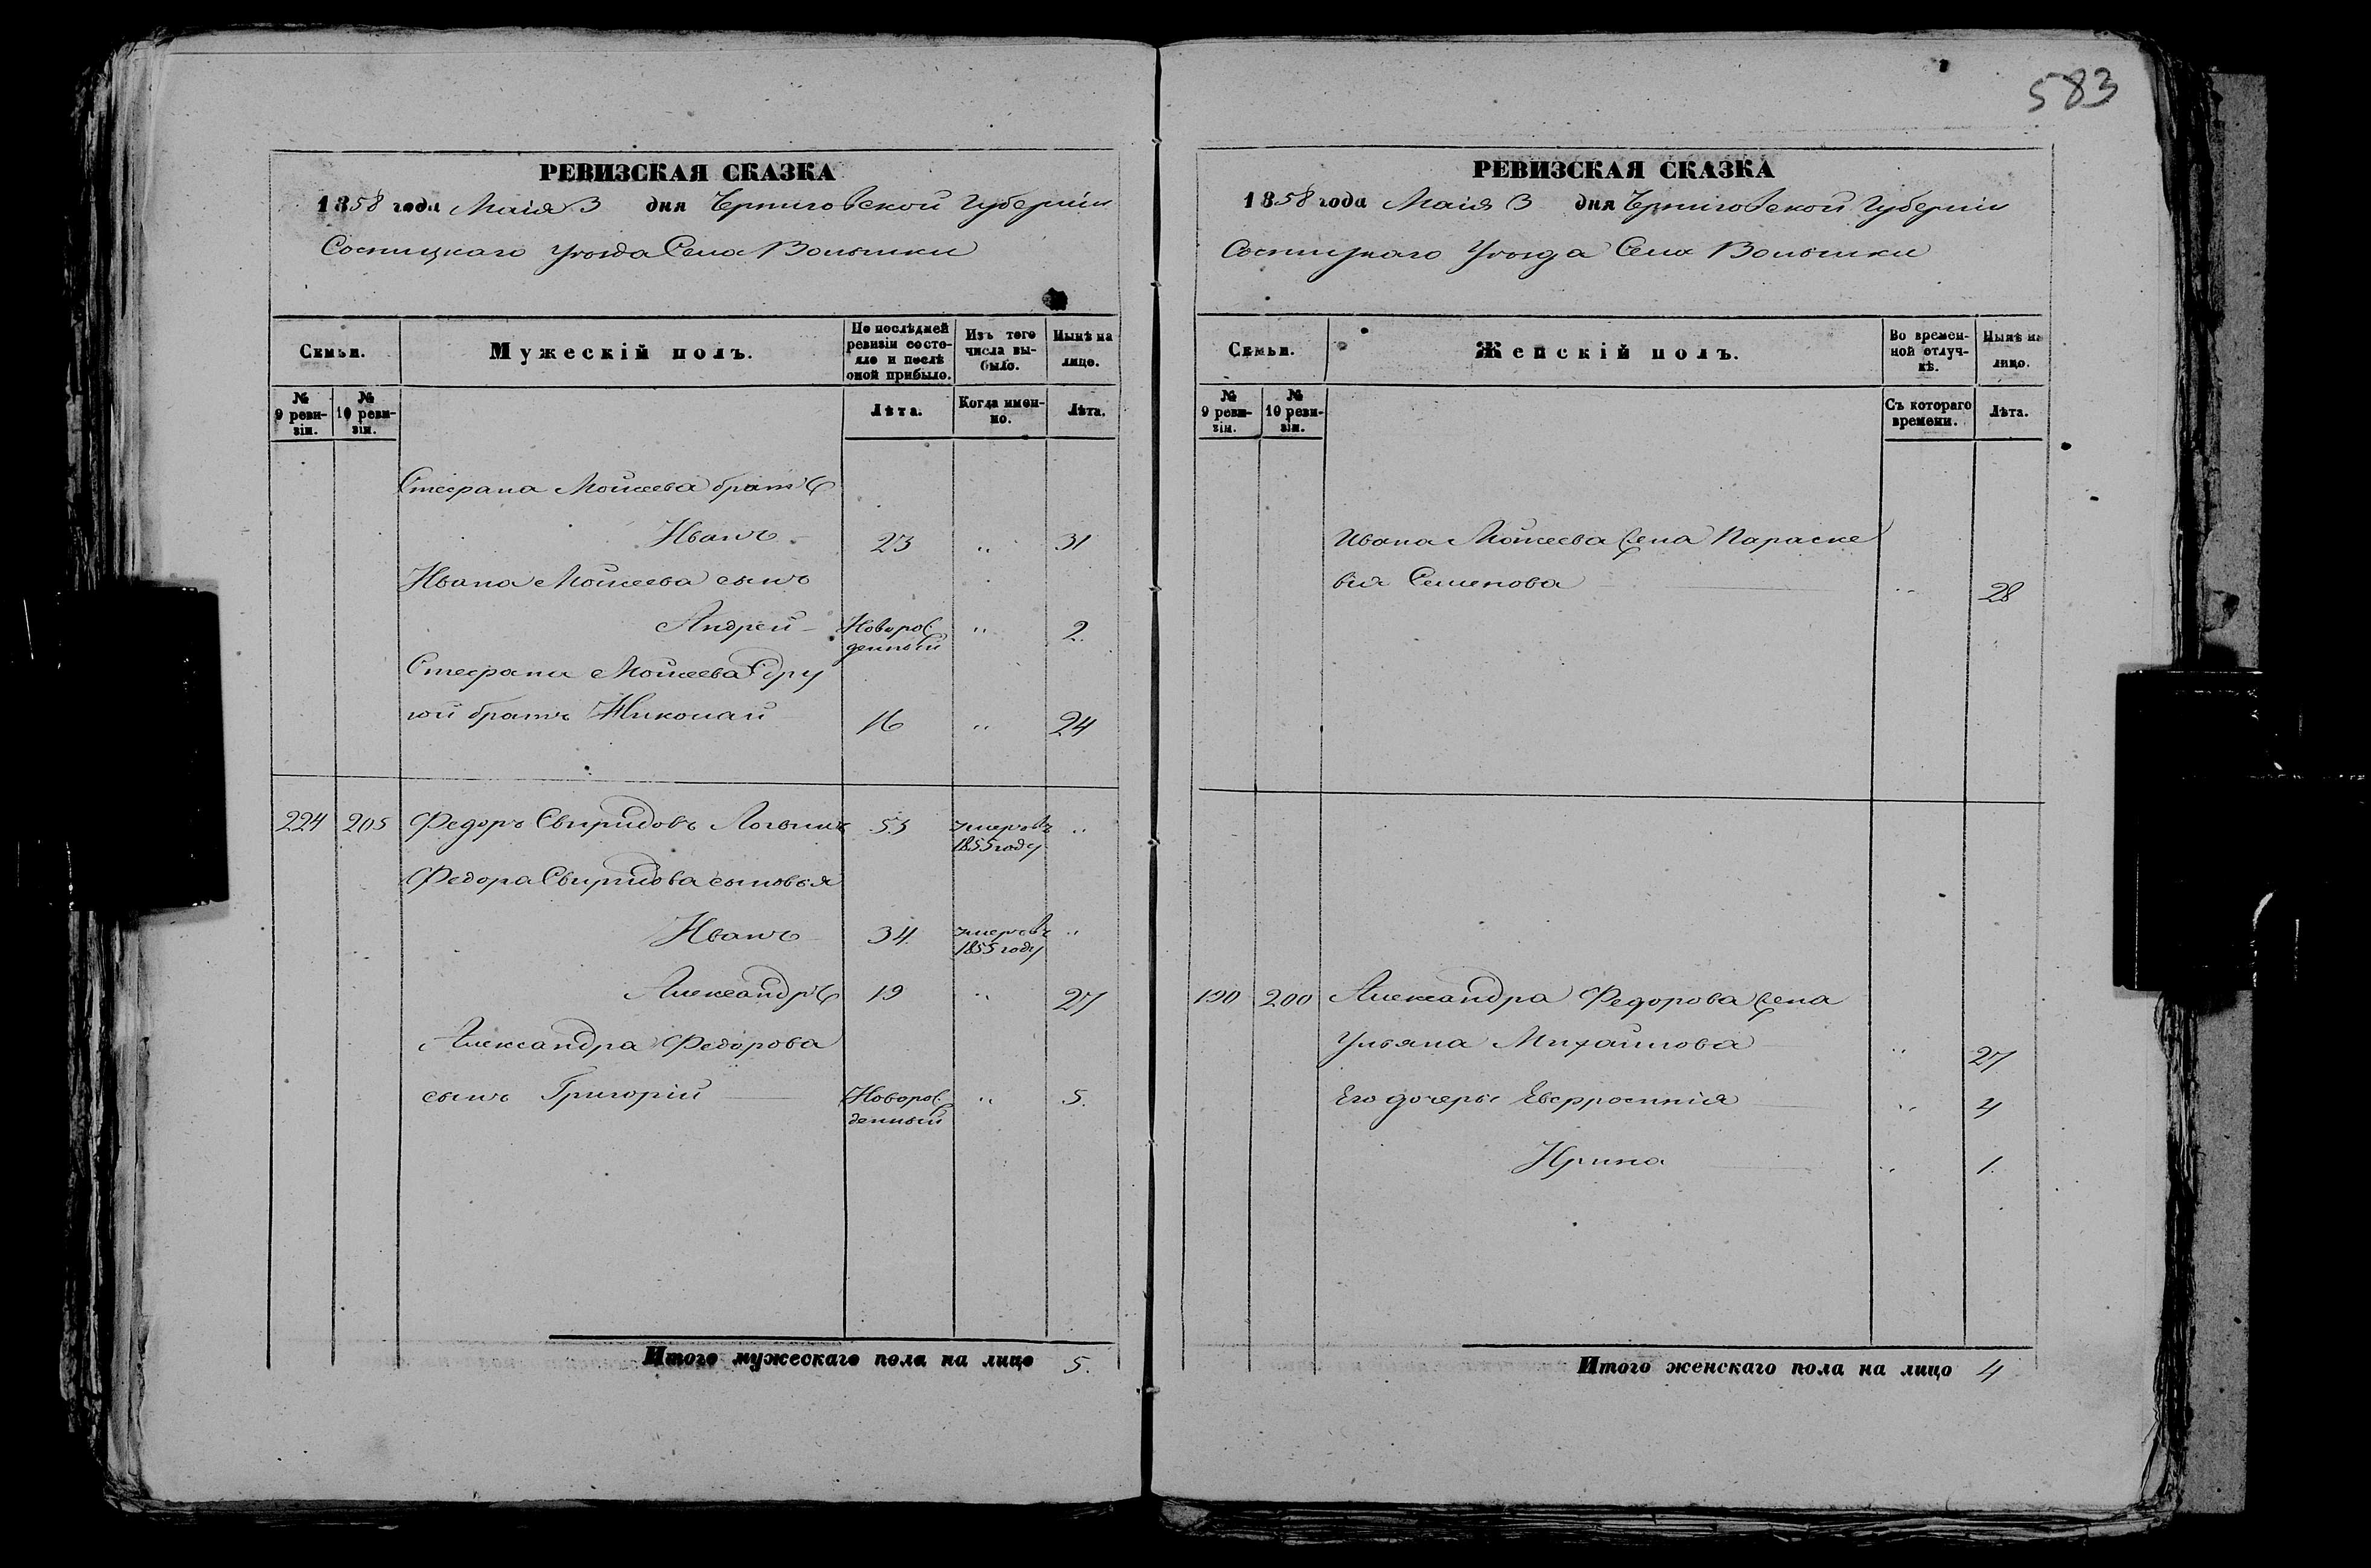 583
РЕВИЗСКАЯ СКАЗКА
1858 года Маія 3 дня Черниговской Губерніи
Сосницкаго Уѣзда Села Волынки
Семьи.
Мужескій полъ.
По послѣдней ревизіи состояло и послѣ оной прибыло.
Изъ того числа выбыло.
Нынѣ на лицо.
№ 9 ревизіи.
№ 10 ревизіи.
Лѣта.
Когда именно.
Лѣта.
Стефана Мойсеева братъ
Иванъ 23 " 31
Ивана Мойсеева сынъ
Андрей Новорожденный " 2
Стефана Мойсеева дру
гой братъ Николай 16 " 24
224 205 Федоръ Свиридовъ 53 умеръ въ 1855 году "
Федора Свиридова сыновья
Иванъ 34 умеръ въ 1855 году "
Александръ 19 " 27
Александра Федорова
сынъ Григорій Новорожденный " 5.
Итого мужескаго пола на лицо 5.
РЕВИЗСКАЯ СКАЗКА
1858 года Маія 3 дня Черниговской Губерніи
Сосницкаго Уѣзда Села Волынки
Семьи.
Женскій полъ.
Во временной отлучкѣ.
Нынѣ на лицо.
№ 9 ревизіи.
№ 10 ревизіи.
Съ котораго времени.
Лѣта.
Ивана Мойсеева жена Параске
вія Семенова " 28
190 200 Александра Федорова жена
Ульяна Михайлова " 27
Его дочери Евфросинія " 4
Ирина " 1.
Итого женскаго пола на лицо 4